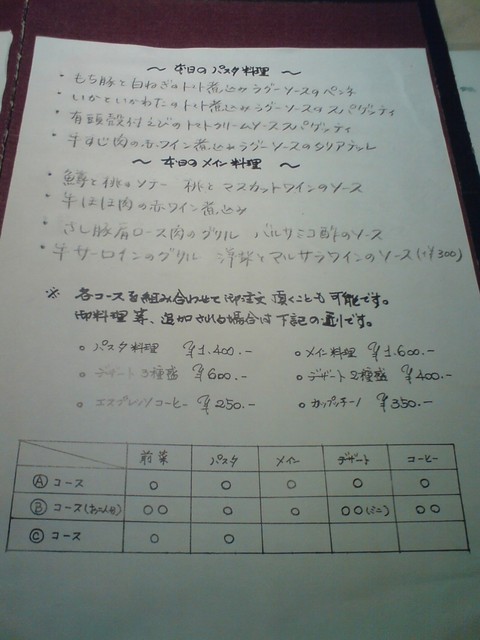 ～ 本日の パスタ 料理 ～
・もち豚と白ねぎのトマト煮込みラグーソースのペンネ
・いかといかわたのトマト煮込みラグーソースのスパゲッティ
・有頭殻付えびのトマトクリームソーススパゲッティ
・牛すじ肉の赤ワイン煮込みラグーソースのタリアテッレ
～ 本日の メイン 料理 ～
・鱒と桃のソテー 桃とマスカットワインのソース
・牛ほほ肉の赤ワイン煮込み
・豚肩ロース肉のグリル バルサミコ酢のソース
・牛サーロインのグリル 洋梨とマルサラワインのソース(+¥300)
※ 各コースを組み合わせて御注文頂くことも可能です。
御料理等、追加される場合は下記の通りです。
○ パスタ料理 ¥1.400.- ○ メイン料理 ¥1.600.-
○ デザート3種盛 ¥600.- ○ デザート2種盛 ¥400.-
○ エスプレッソコーヒー ¥250.- ○ カップッチーノ ¥350.-
前菜 パスタ メイン デザート コーヒー
Ⓐ コース ○ ○ ○ ○ ○
Ⓑ コース(お二人分) ○○ ○ ○ ○○(ミニ) ○○
Ⓒ コース ○ ○